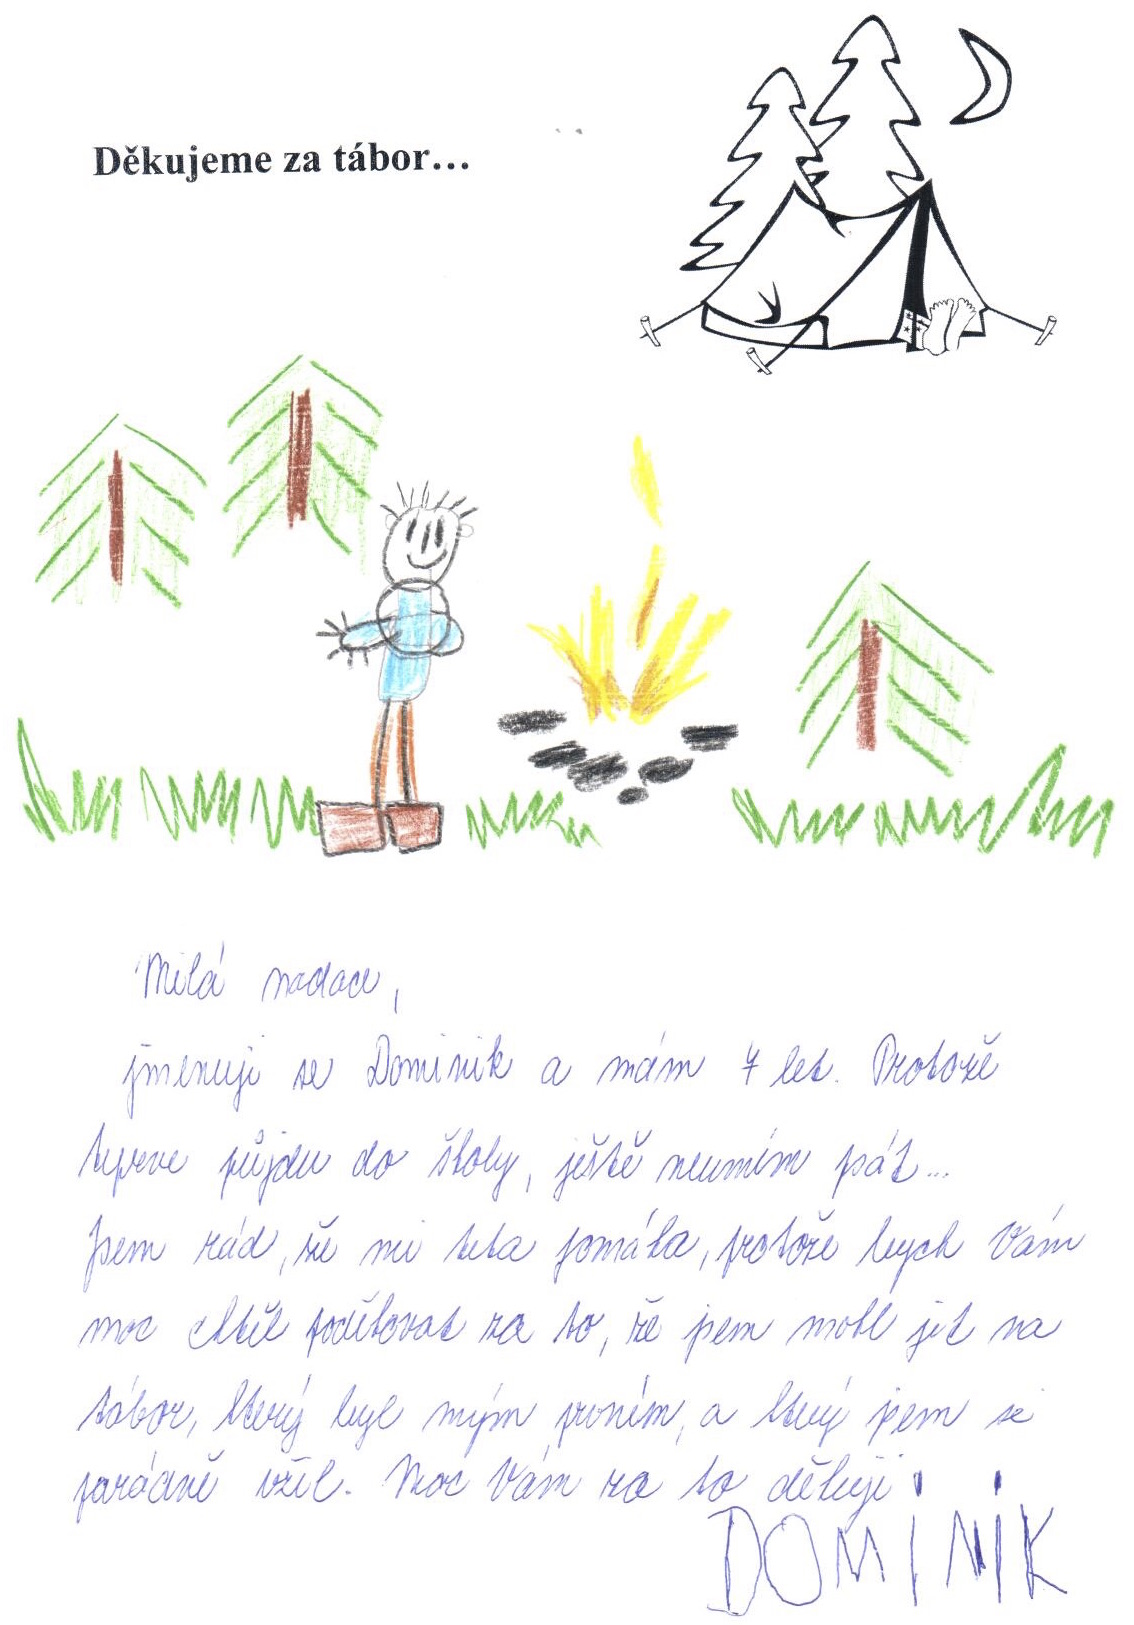 Děkujeme za tábor...
Milá nadace,
jmenuji se Dominik a mám 7 let. Protože
teprve půjdu do školy, ještě neumím psát...
Jsem rád, že mi teta pomáha, protože bych Vám
moc chtěl poděkovat za to, že jsem mohl jít na
tábor, který byl mým prvním, a který jsem si
parádně užil. Moc Vám za to děkuji
DOMINIK